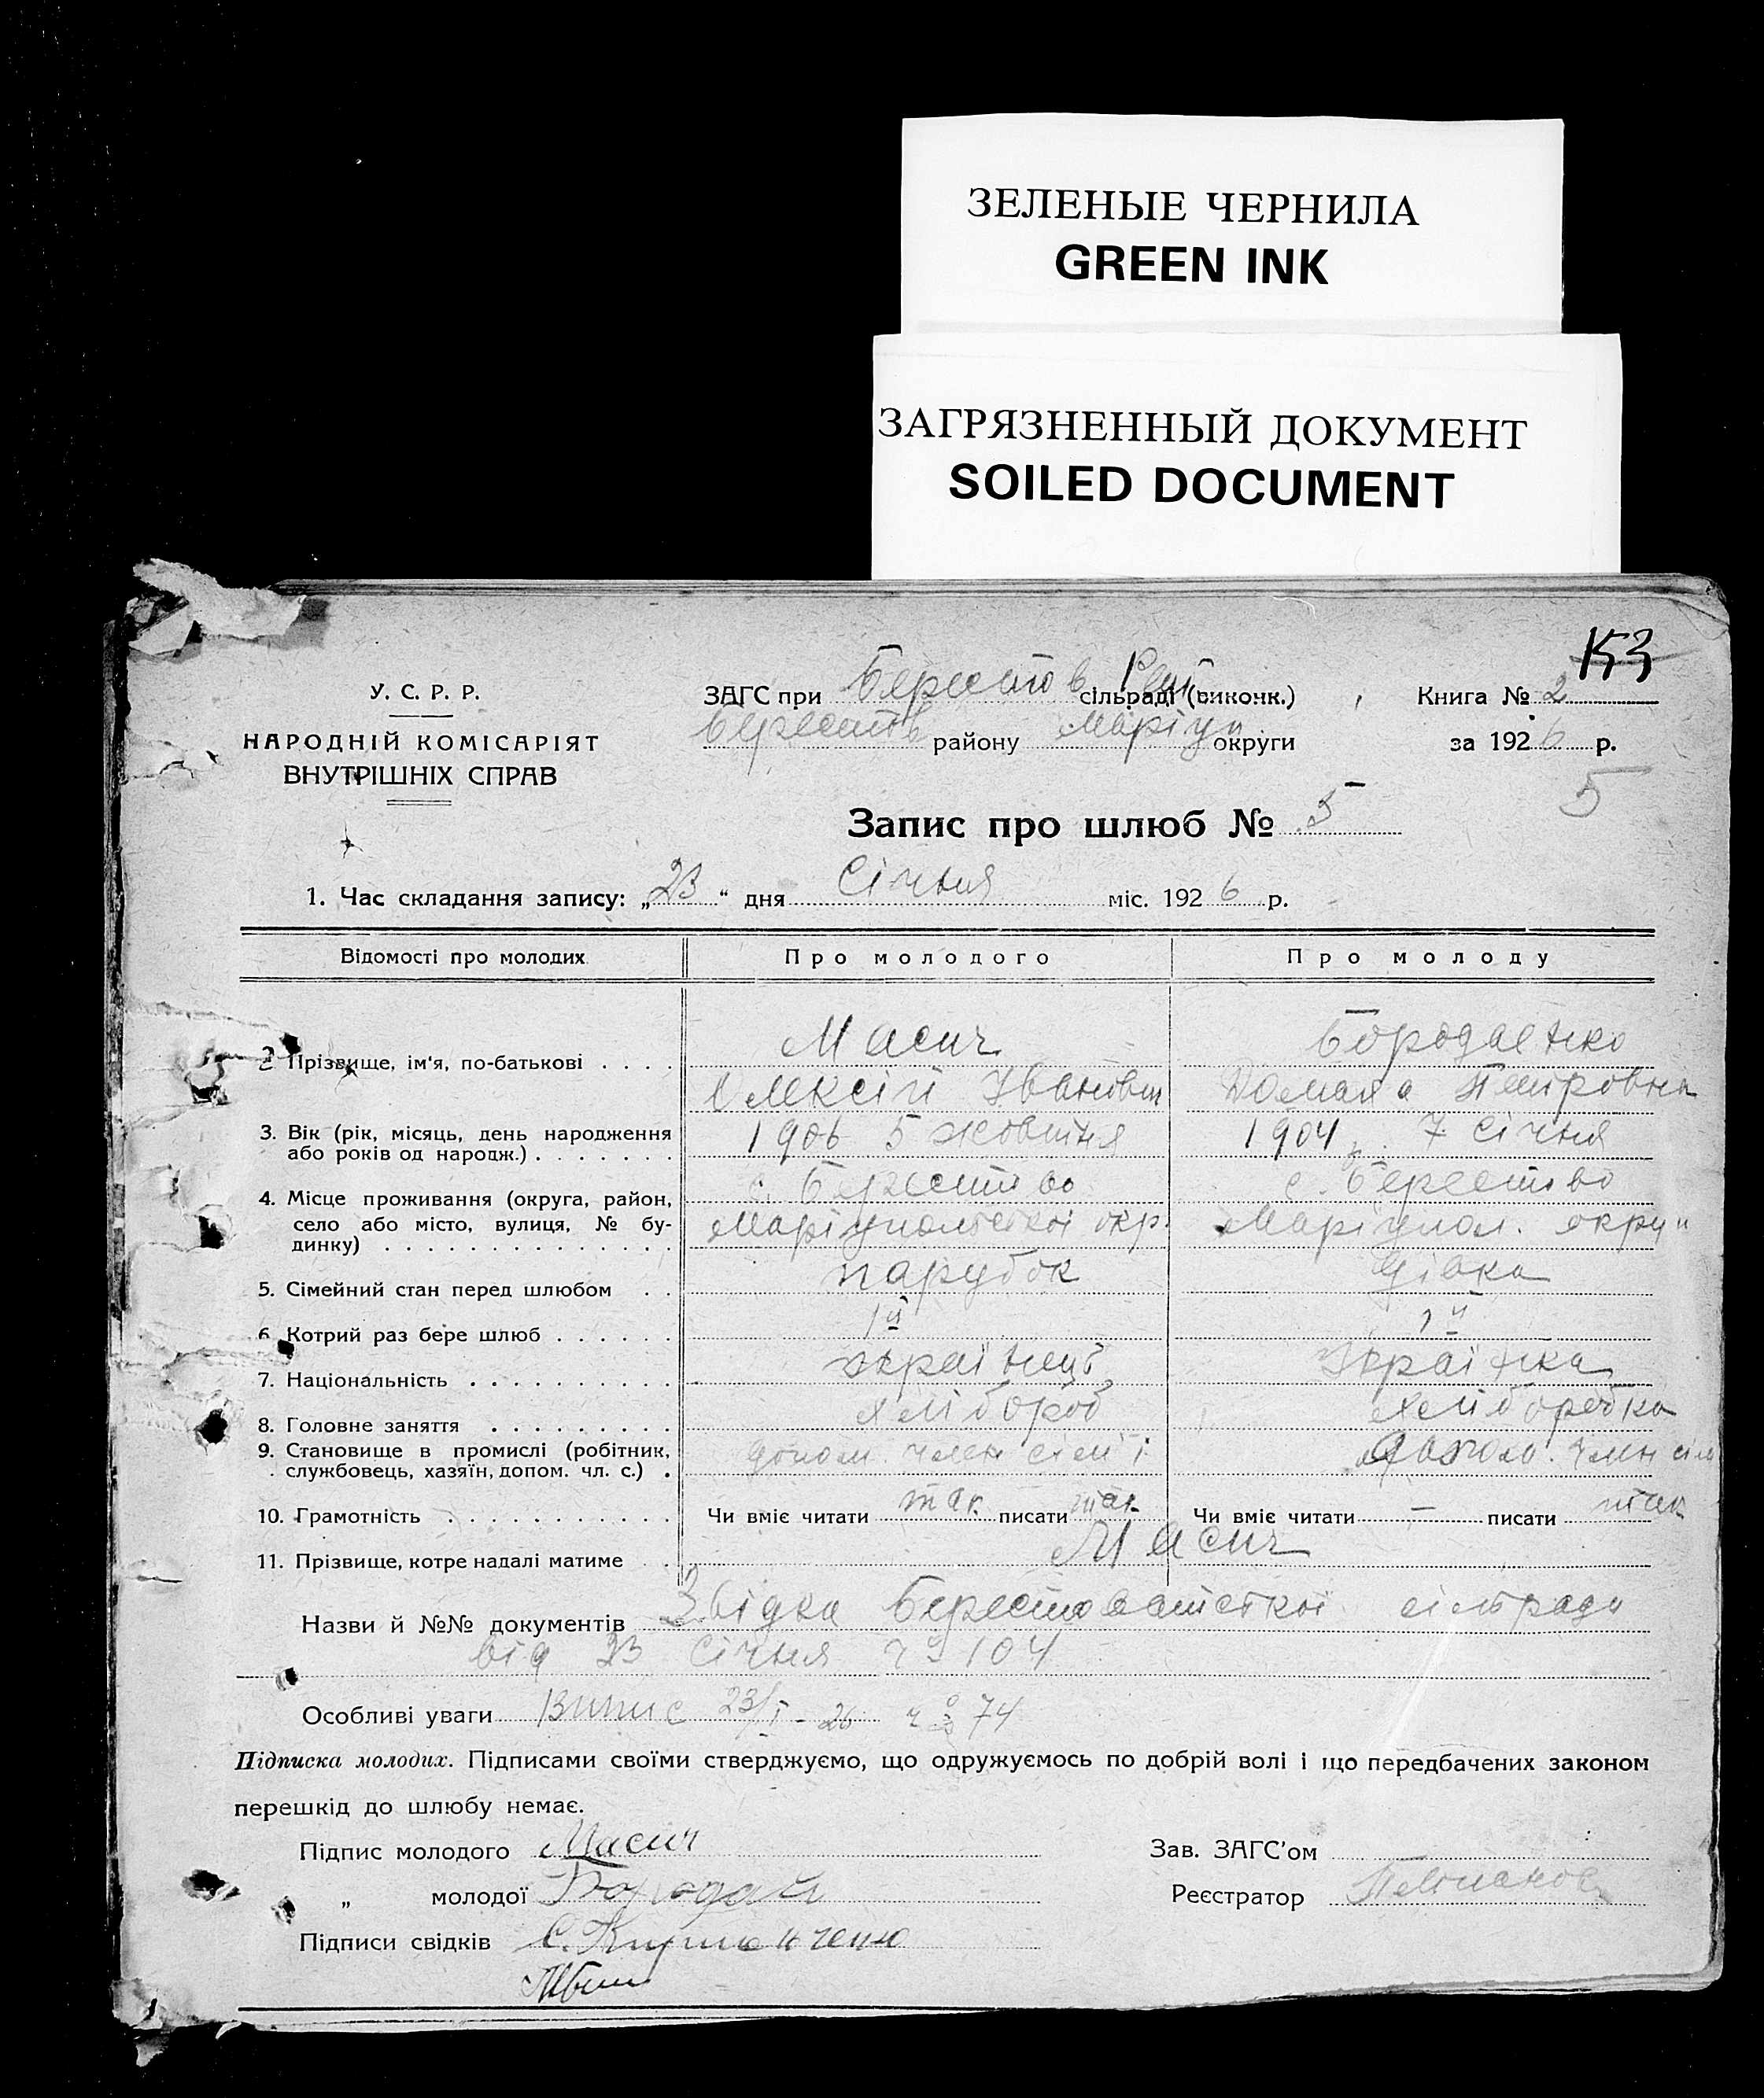 ЗЕЛЕНЫЕ ЧЕРНИЛА
GREEN INK
ЗАГРЯЗНЕННЫЙ ДОКУМЕНТ
SOILED DOCUMENT
153
У. С. Р. Р.
НАРОДНІЙ КОМІСАРІЯТ
ВНУТРІШНІХ СПРАВ
ЗАГС при Берестов сільраді (виконк.)
Берестов району Маріуп округи
Книга № 2
за 1926 р.
5
Запис про шлюб № 5
1. Час складання запису: „23“ дня Січня міс. 1926 р.
Відомості про молодих Про молодого Про молоду
2 Прізвище, ім'я, по-батькові . . . . Масич
Олексій Іванович
Бородаєнко
Петровна
3. Вік (рік, місяць, день народження
або років од народж.) . . . . . . . 1906 5 жовтня 1904 7 січня
4. Місце проживання (округа, район,
село або місто, вулиця, № бу-
динку) . . . . . . . . . . . . . . с. Берестово
Маріупольської окр.
с. Берестово
Маріупол. окру
5. Сімейний стан перед шлюбом . . парубок дівка
6 Котрий раз бере шлюб . . . . . . 1й 1й
7. Національність . . . . . . . . . . українець Українка
8. Головне заняття . . . . . . . . . хлібороб хліборобка
9. Становище в промислі (робітник,
службовець, хазяїн, допом. чл. с.) . допом. член сім'ї допом. член сім
10. Грамотність . . . . . . . . . . . Чи вміє читати так писати так Чи вміє читати — писати так
11. Прізвище, котре надалі матиме . . Масич
Назви й №№ документів Звідка сільради
від 23 Січня 104
Особливі уваги Випис 23/I-26 74
Підписка молодих. Підписами своїми стверджуємо, що одружуємось по добрій волі і що передбачених законом
перешкід до шлюбу немає.
Підпис молодого Масич
„ молодої Бородай
Підписи свідків
Зав. ЗАГС'ом
Реєстратор